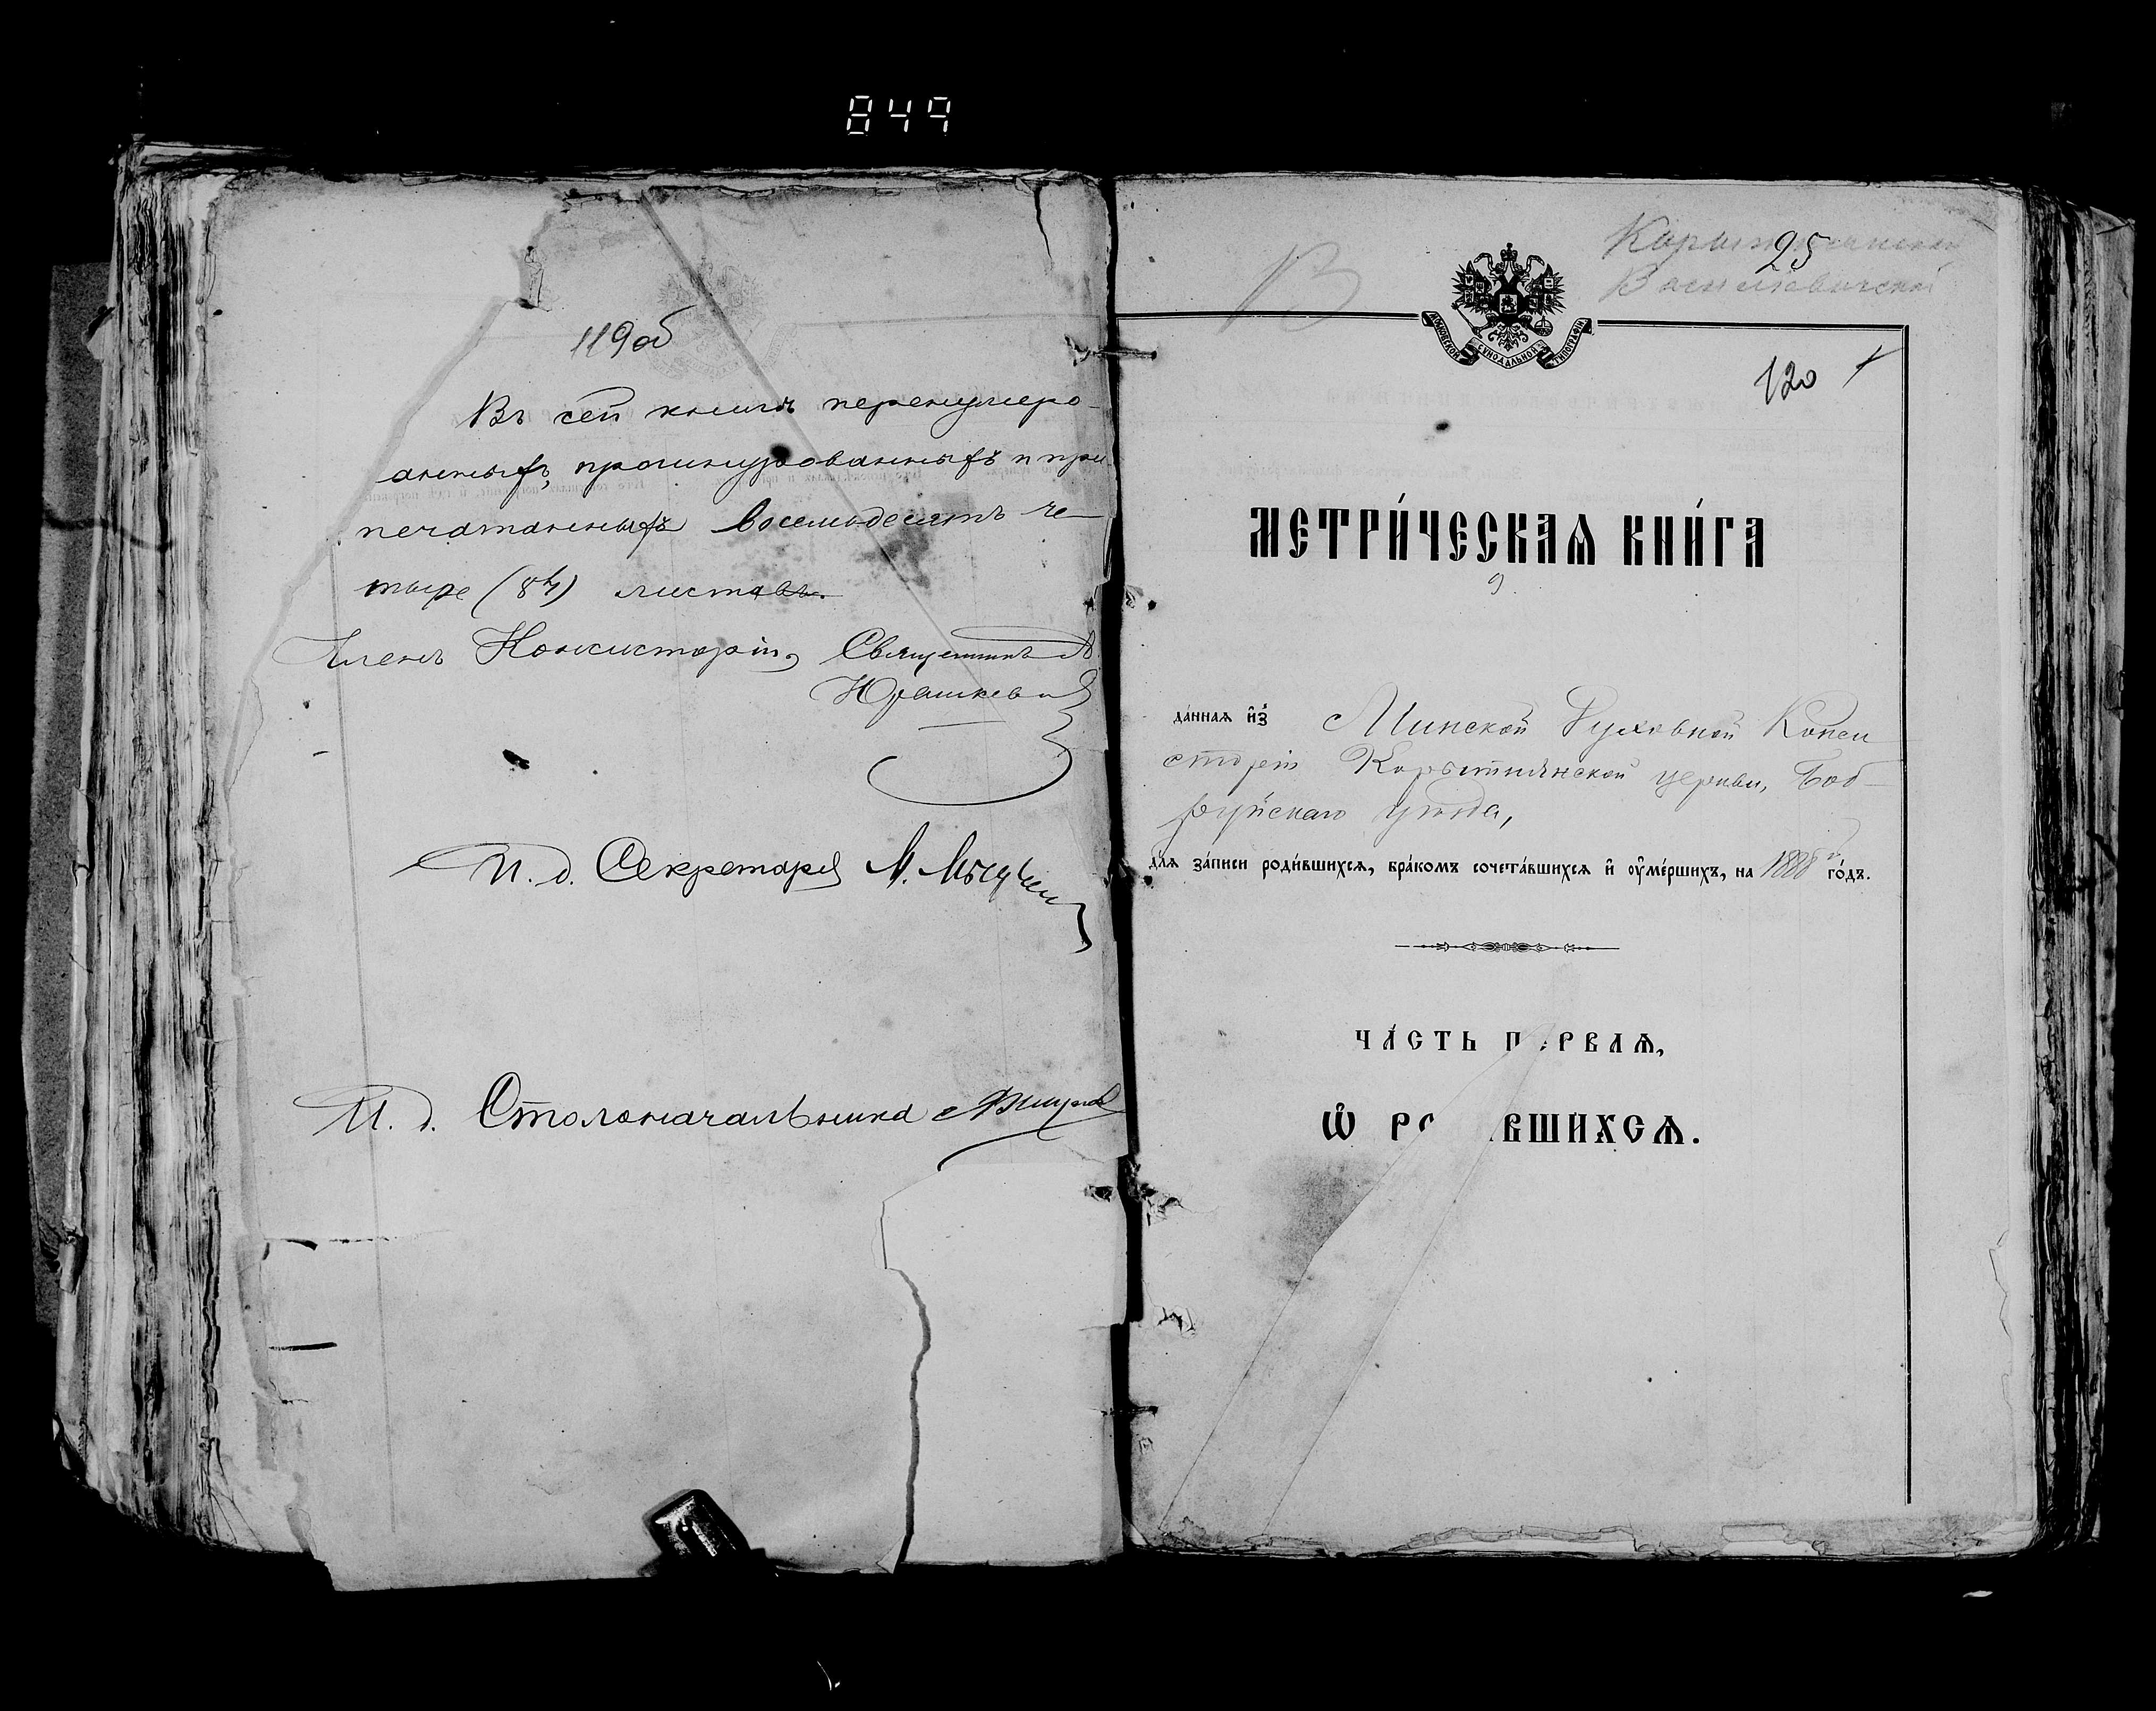 849
119 об
Въ сей книгѣ перенумеро-
ванныхъ, прошнурованныхъ и при
печатанныхъ восемьдесятъ че-
тыре (84) листовъ.
Членъ Консисторіи, Священникъ
Юрашкевичъ
И. д. Секретаря М.
И. д. Столоначальника
В
25
МОСКОВСКОЙ СѴНОДАЛЬНОЙ ТИПОГРАФІИ
120
МЕТРИ́ЧЕСКАѦ КНИ́ГА
да́ннаѧ и҆з̾ Минской Духовной Конси
сторіи Корытнянской церкви, Боб-
руйскаго уѣзда,
длѧ за́писи роди́вшихсѧ, бра́комъ сочета́вшихсѧ и҆ ᲂу҆ме́ршихъ, на 1888й го́дъ.
ЧА́СТЬ П РВАѦ,
Ѡ҆ РО ВШИХСѦ.